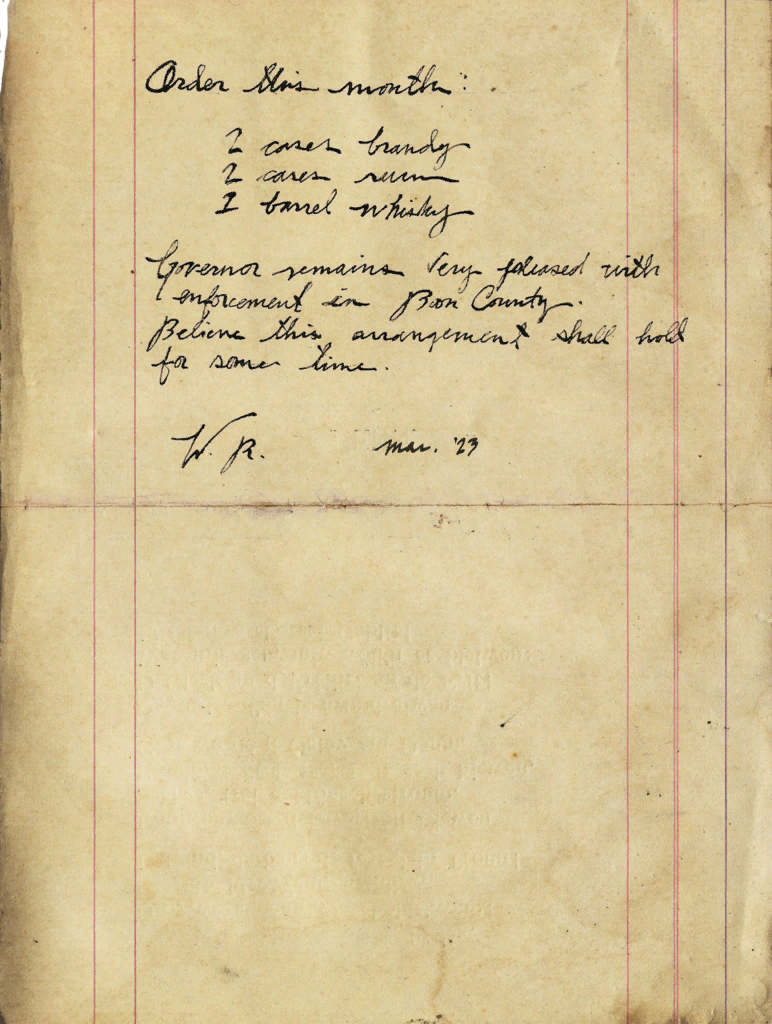 Order this month:
2 cases brandy
2 cases rum
1 barrel whisky
Governor remains very pleased with
enforcement in Bon County.
Believe this arrangement shall hold
for some time.
W. R. Mar. '23